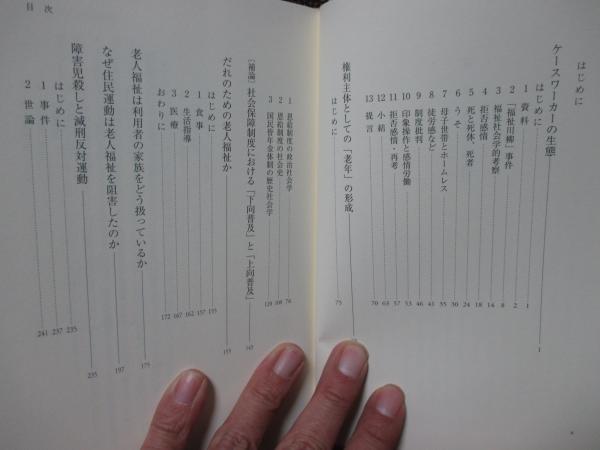 はじめに
ケースワーカーの生態 1
はじめに 1
1 資料 2
2 「福祉川柳」事件 8
3 福祉社会学的考察 14
4 拒否感情 18
5 死と死体、死者 24
6 うそ 30
7 母子世帯とホームレス 35
8 徒労感など 41
9 制度批判 46
10 印象操作と感情労働 52
11 拒否感情・再考 57
12 小結 63
13 提言 70
権利主体としての「老年」の形成
はじめに 75
目次
1 恩給制度の政治社会学 76
2 恩給制度の社会史 108
3 国民皆年金体制の歴史社会学 129
〔補論〕社会保障制度における「下向普及」と「上向普及」 145
だれのための老人福祉か 155
はじめに 155
1 食事 157
2 生活指導 162
3 医療 167
おわりに 172
老人福祉は利用者の家族をどう扱っているか 175
なぜ住民運動は老人福祉を阻害したのか 197
障害児殺しと減刑反対運動 235
はじめに 235
1 事件 237
2 世論 241